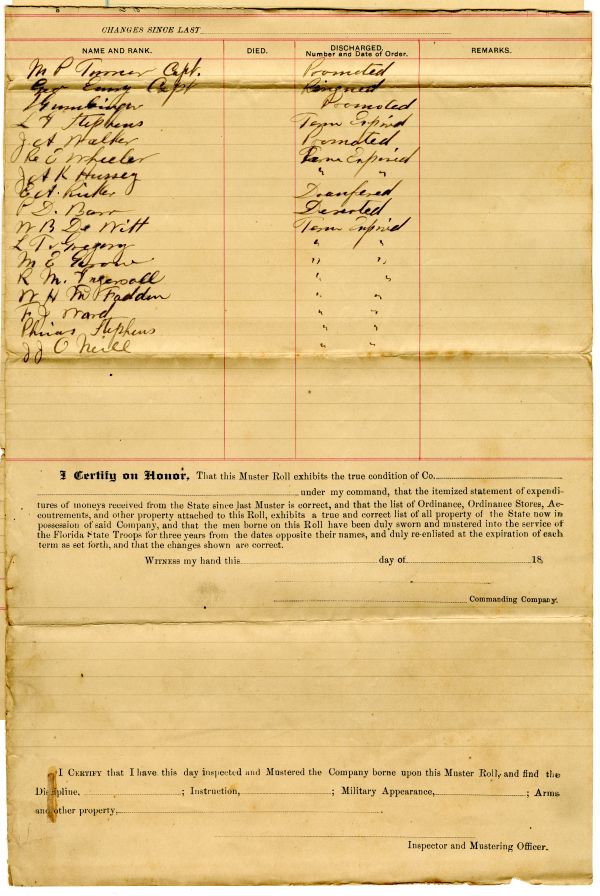 CHANGES SINCE LAST
NAME AND RANK. DIED. DISCHARGED. Number and Date of Order. REMARKS.
M P Turner Capt. Promoted
Geo Capt Resigned
Promoted
L F Stephens Term Expired
J A Walker Promoted
R E Wheeler Term Expired
J A K Hussey " "
E A. Ricker Transfered
D. Barr Deserted
W B De Witt Term Expired
L T Gregory " "
M E " "
R M. Ingersoll " "
W H Mc Fadden " "
F J Ward " "
Phinas Stephens " "
J J O Neill " "
I Certify on Honor, That this Muster Roll exhibits the true condition of Co.
under my command, that the itemized statement of expendi-
tures of moneys received from the State since last Muster is correct, and that the list of Ordinance, Ordinance Stores, Ac-
coutrements, and other property attached to this Roll, exhibits a true and correct list of all property of the State now in
possession of said Company, and that the men borne on this Roll have been duly sworn and mustered into the service of
the Florida State Troops for three years from the dates opposite their names, and duly re-enlisted at the expiration of each
term as set forth, and that the changes shown are correct.
WITNESS my hand this day of 18
Commanding Company.
I CERTIFY that I have this day inspected and Mustered the Company borne upon this Muster Roll, and find the
Discipline, ; Instruction, ; Military Appearance, ; Arms
and other property,
Inspector and Mustering Officer.